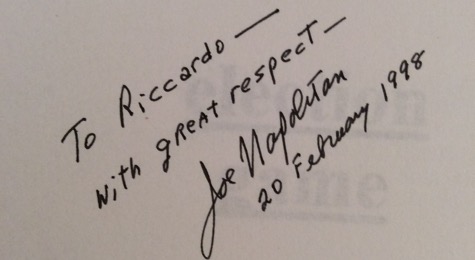 To Riccardo —
with gREAt respect —
Joe Napolitan
20 February 1998
election
game